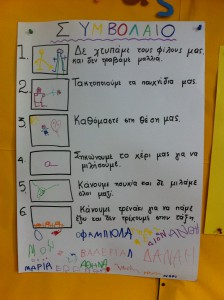 ΣΥΜΒΟΛΑΙΟ
1. Δε χτυπάμε τους φίλους μας
και δεν τραβάμε μαλλιά.
2. Τακτοποιούμε τα παιχνίδια μας.
3. Καθόμαστε στη θέση μας.
4. Σηκώνουμε το χέρι μας για να
μιλήσουμε.
5. Κάνουμε ησυχία και δε μιλάμε
όλοι μαζί.
6. Κάνουμε τρενάκι για να πάμε
έξω και δεν τρέχουμε στην τάξη.
ΦΑΜΠΙΟΛΑ
ΒΑΛΕΡΙΑ
ΔΑΝΑΗ
ΜΑΡΙΑ